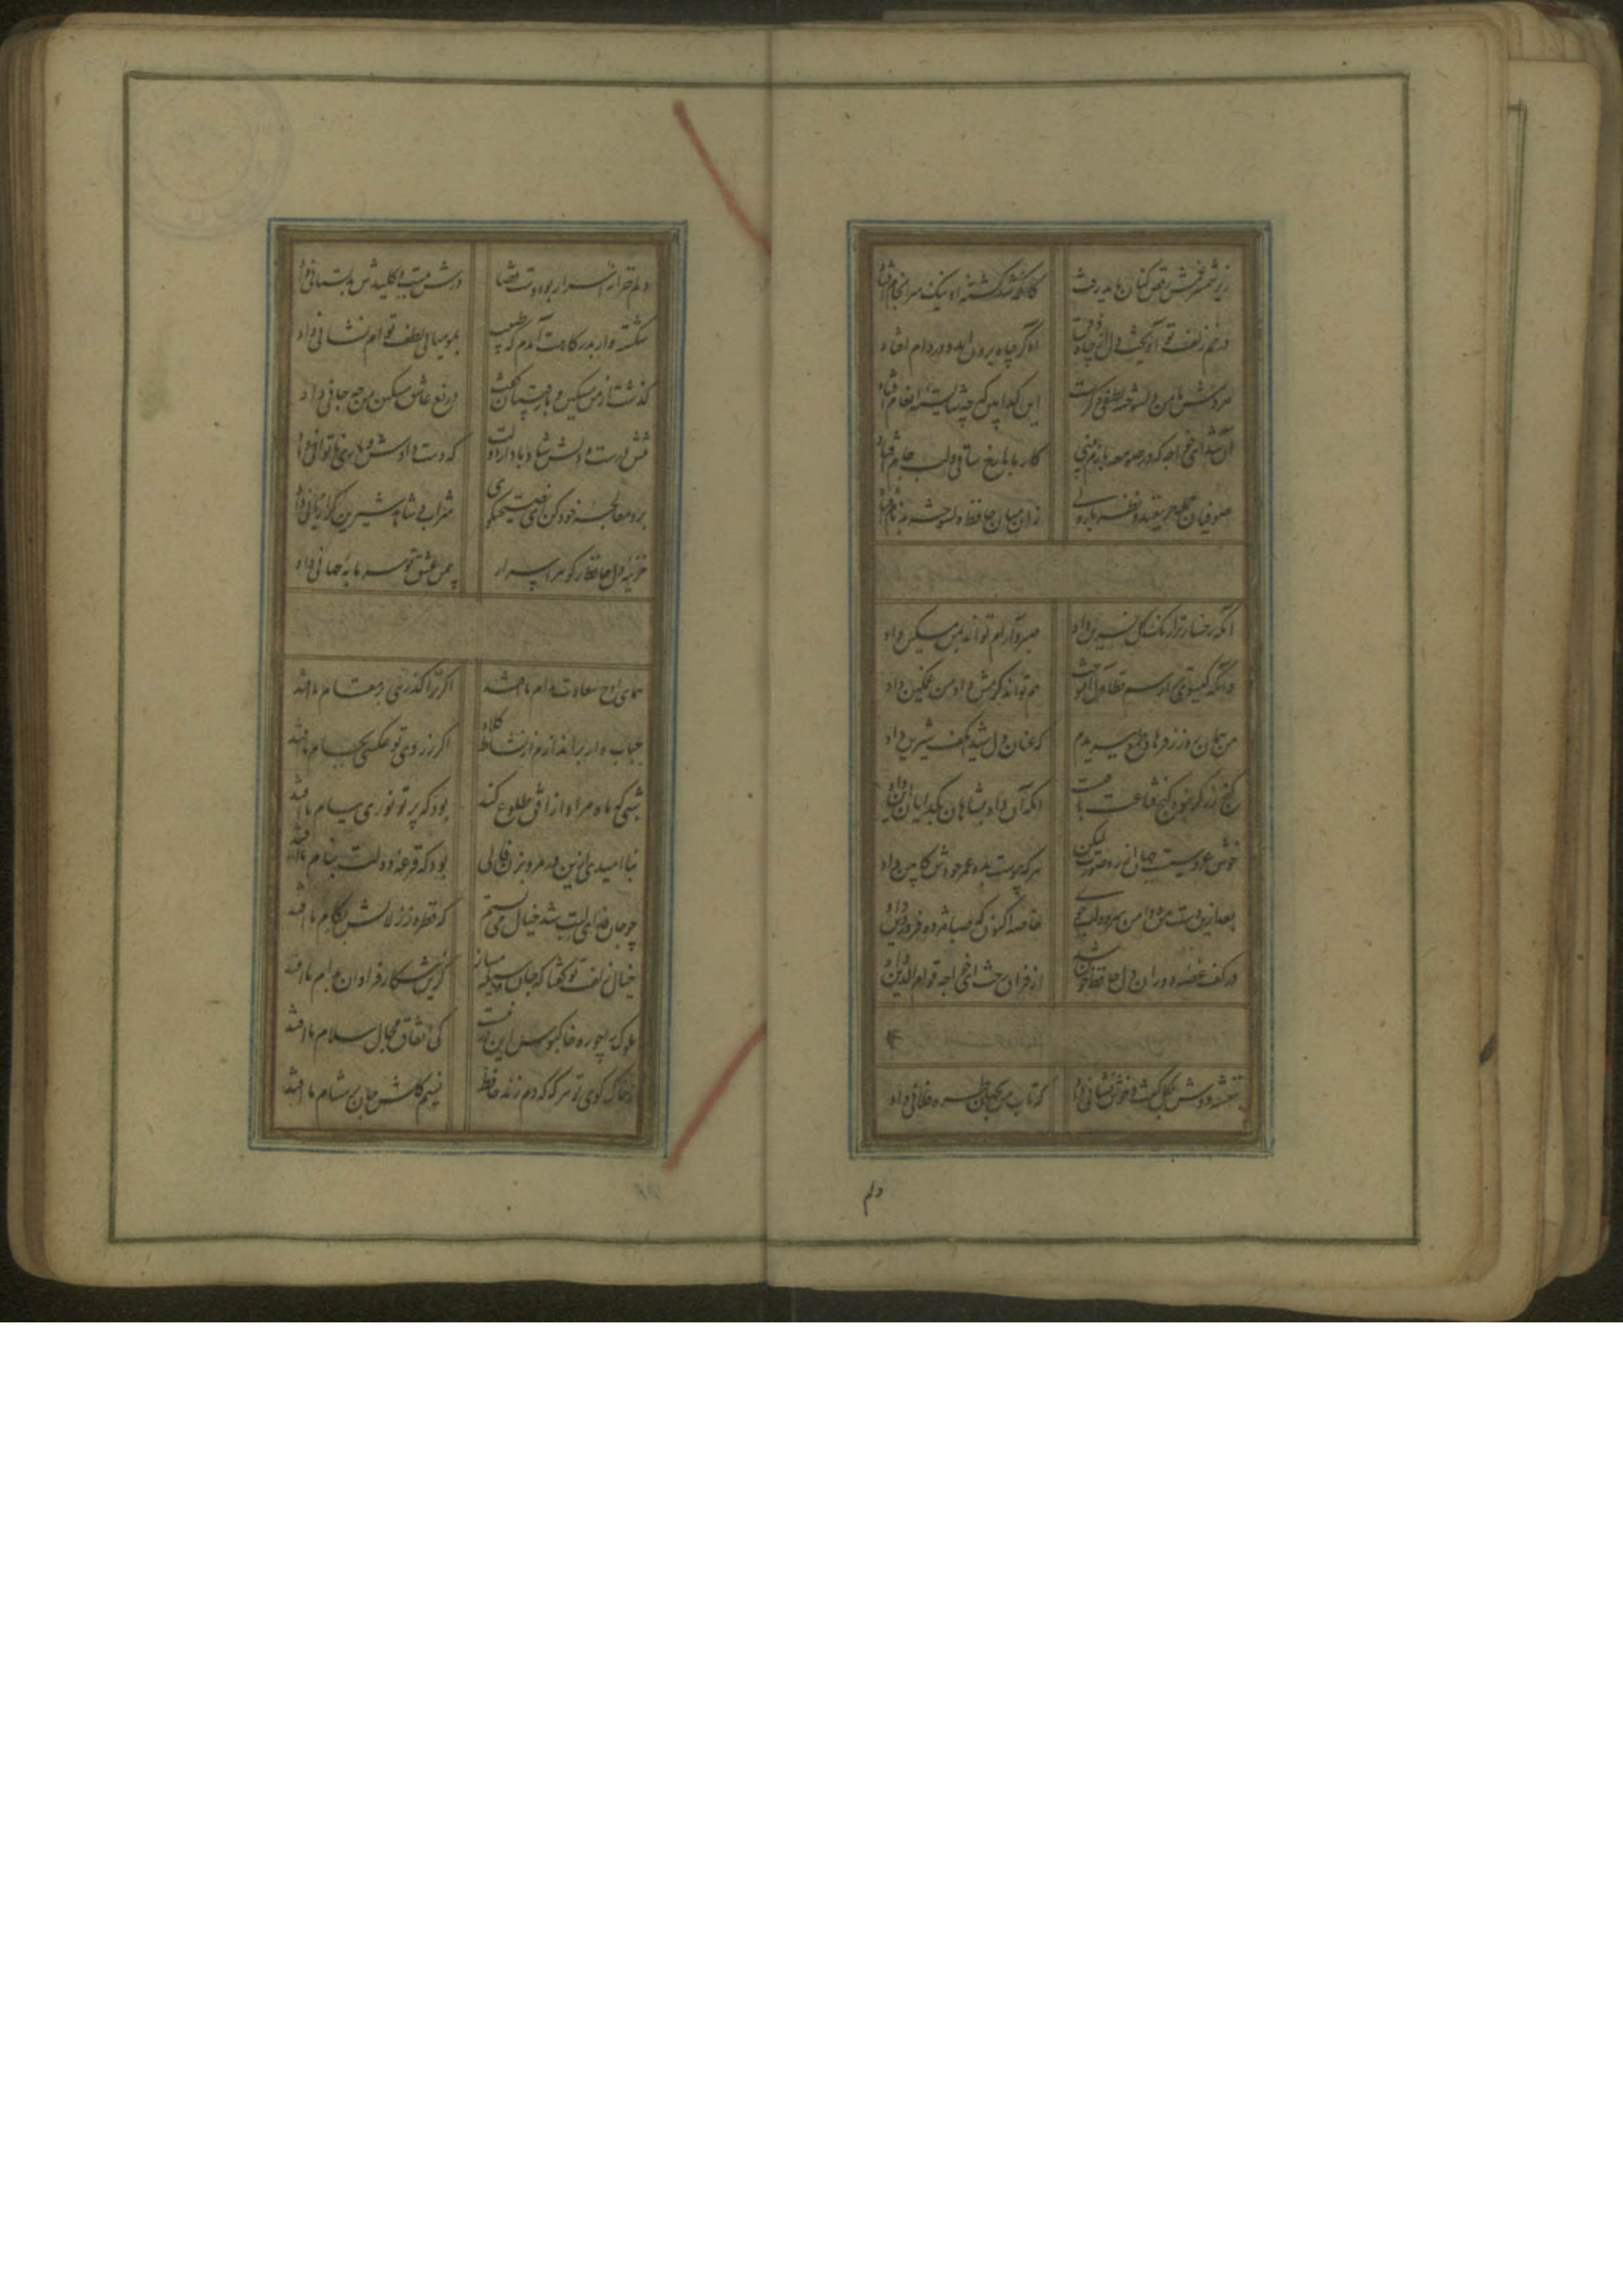 زیر شمشیر غمش رقص کنان باید رفت کانکه شد کشته او نیک سرانجام افتاد
در خم زلف تو آویخت دل از چاه ذقن آه کز چاه برون آمد و در دام افتاد
هر دمش با من دلسوخته لطفی دگرست این گدا بین که چه شایسته انعام افتاد
آن شد ای خواجه که در صومعه بازم بینی کار ما با رخ ساقی و لب جام افتاد
صوفیان جمله حریفند و نظرباز ولی زان میان حافظ دلسوخته بدنام افتاد
آنکه رخسار ترا رنگ گل نسرین داد صبر و آرام تواند بمن مسکین داد
وانکه گیسوی ترا رسم تطاول آموخت هم تواند کرمش داد من غمگین داد
من همان روز ز فرهاد طمع ببریدم که عنان دل شیدا بکف شیرین داد
گنج زر گر نبود کنج قناعت باقیست آنکه آن داد بشاهان بگدایان این داد
خوش عروسیست جهان از ره صورت لیکن هر که پیوست بدو عمر خودش کابین داد
بعد ازین دست من و دامن سرو و لب جوی خاصه اکنون که صبا مژده فروردین داد
در کف غصه دوران دل حافظ خون شد از فراق رخت ای خواجه قوام الدین داد
بنفشه دوش بگل گفت و خوش نشانی داد که تاب من بجهان طره فلانی داد
دلم
دلم خزانه اسرار بود و دست قضا درش ببست و کلیدش بدلستانی داد
شکسته وار بدرگاهت آمدم که طبیب بمومیائی لطف توام نشانی داد
گذشت از من مسکین و با رقیبان گفت دریغ عاشق مسکین من چه جانی داد
تنش درست و دلش شاد باد از دولت که دست دادش و یاری ناتوانی داد
برو معالجه خود کن ای نصیحتگوی شراب و شاهد شیرین کرا زیانی داد
خزینه دل حافظ ز گوهر اسرار بیمن عشق تو سرمایه جهانی داد
همای اوج سعادت بدام ما افتد اگر ترا گذری بر مقام ما افتد
حباب وار براندازم از نشاط کلاه اگر ز روی تو عکسی بجام ما افتد
شبی که ماه مراد از افق طلوع کند بود که پرتو نوری ببام ما افتد
بناامیدی ازین در مرو بزن فالی بود که قرعه دولت بنام ما افتد
چو جان فدای لبت شد خیال می بستم که قطره ز زلالش بکام ما افتد
خیال زلف تو گفتا که جان وسیله مساز کزین شکار فراوان بدام ما افتد
ملوک را چو ره خاکبوس این در نیست کی اتفاق مجال سلام ما افتد
ز خاک کوی تو هر گه که دم زند حافظ نسیم گلشن جان در مشام ما افتد